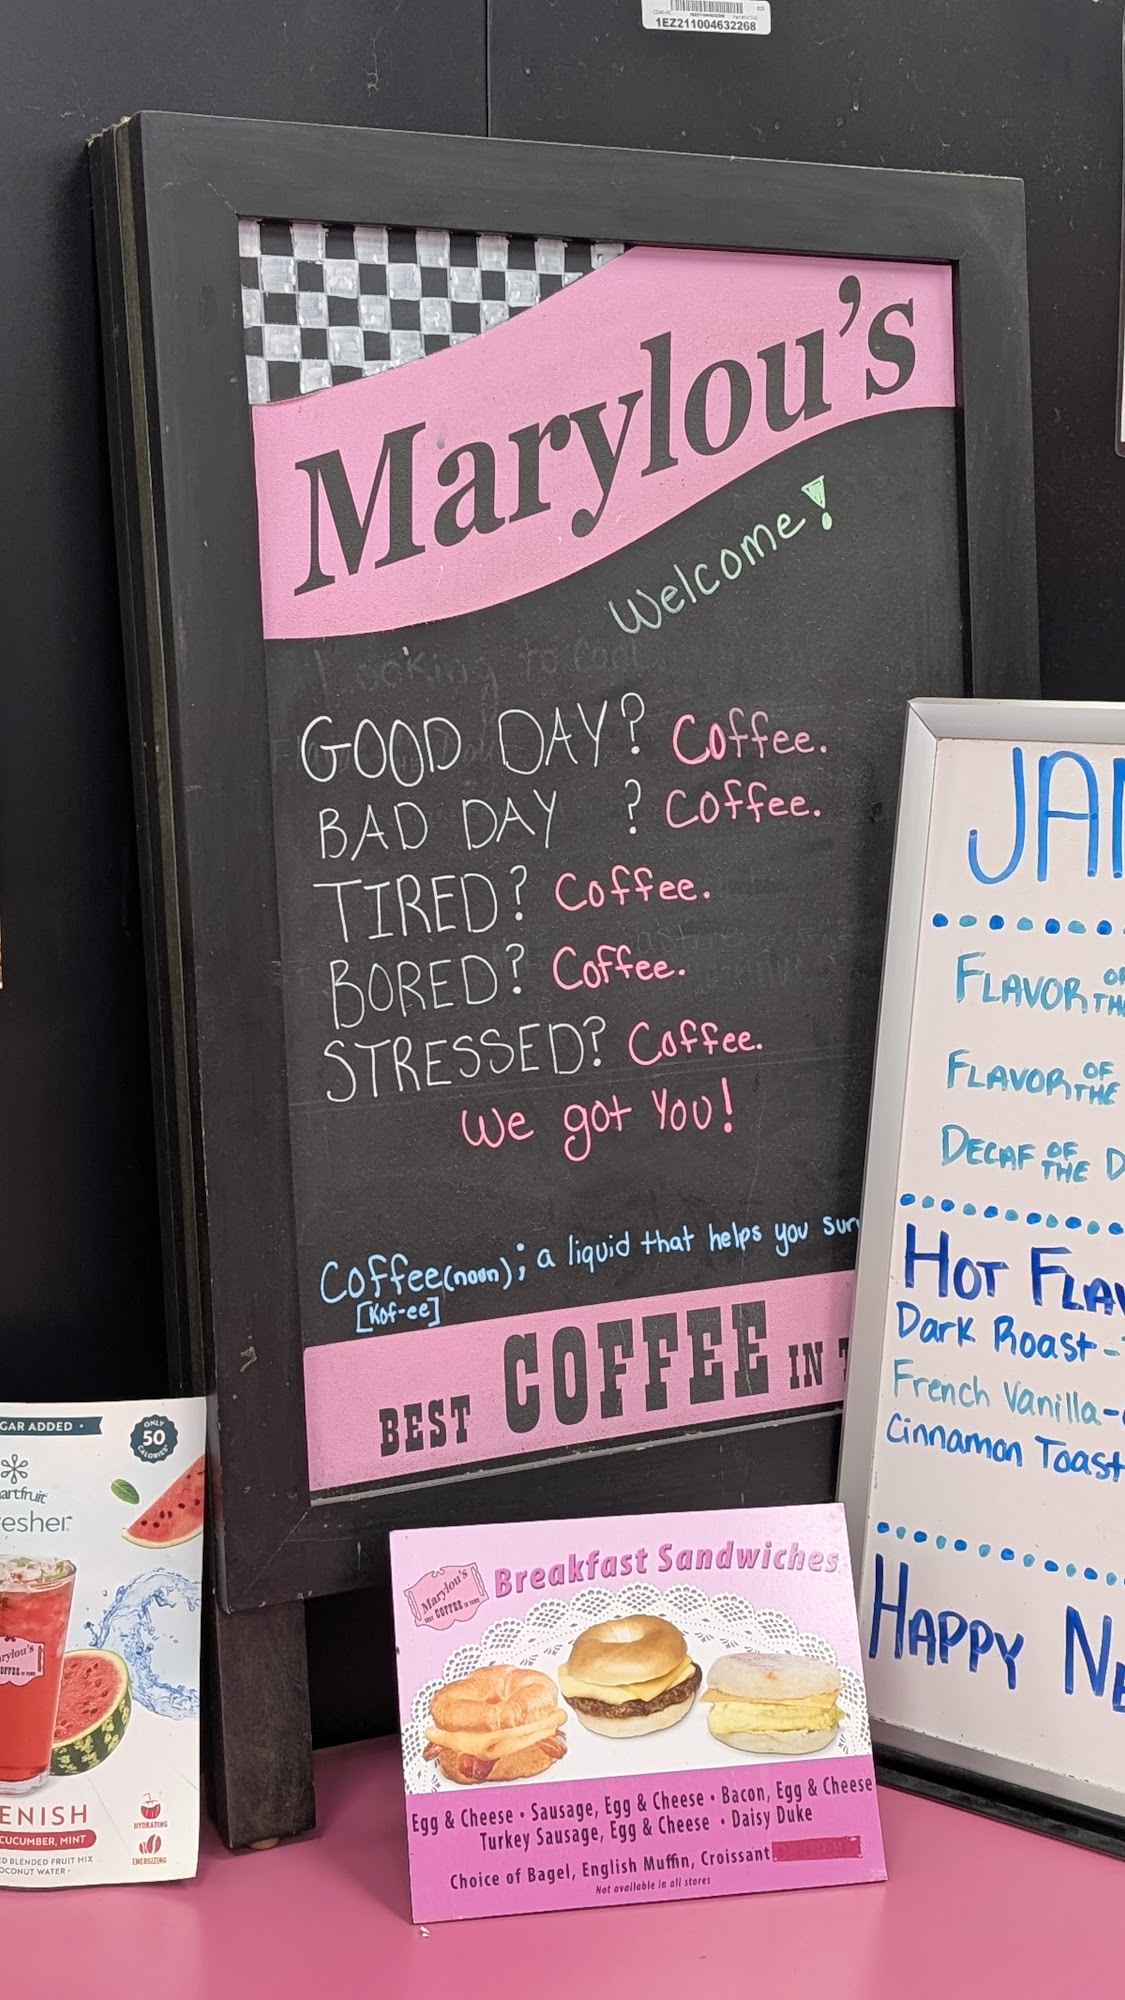 1EZ211004632268
Marylou's
Welcome!
GOOD DAY? Coffee.
BAD DAY ? Coffee.
TIRED? Coffee.
BORED? Coffee.
STRESSED? Coffee.
We got You!
Coffee(noun); a liquid that helps you
[Kof-ee]
BEST COFFEE IN
JAN
FLAVOR OF THE
FLAVOR OF THE
DECAF OF THE D
HOT FLAV
Dark Roast-
French Vanilla-
Cinnamon Toast
HAPPY NE
GAR ADDED •
ONLY
50
CALORIES
artfruit
esher
Marylou's
COFFEE
ENISH
CUCUMBER, MINT
D BLENDED FRUIT MIX
OCONUT WATER •
HYDRATING
ENERGIZING
Marylou's
BEST COFFEE IN TOWN
Breakfast Sandwiches
Egg & Cheese • Sausage, Egg & Cheese • Bacon, Egg & Cheese
Turkey Sausage, Egg & Cheese • Daisy Duke
Choice of Bagel, English Muffin, Croissant
Not available in all stores